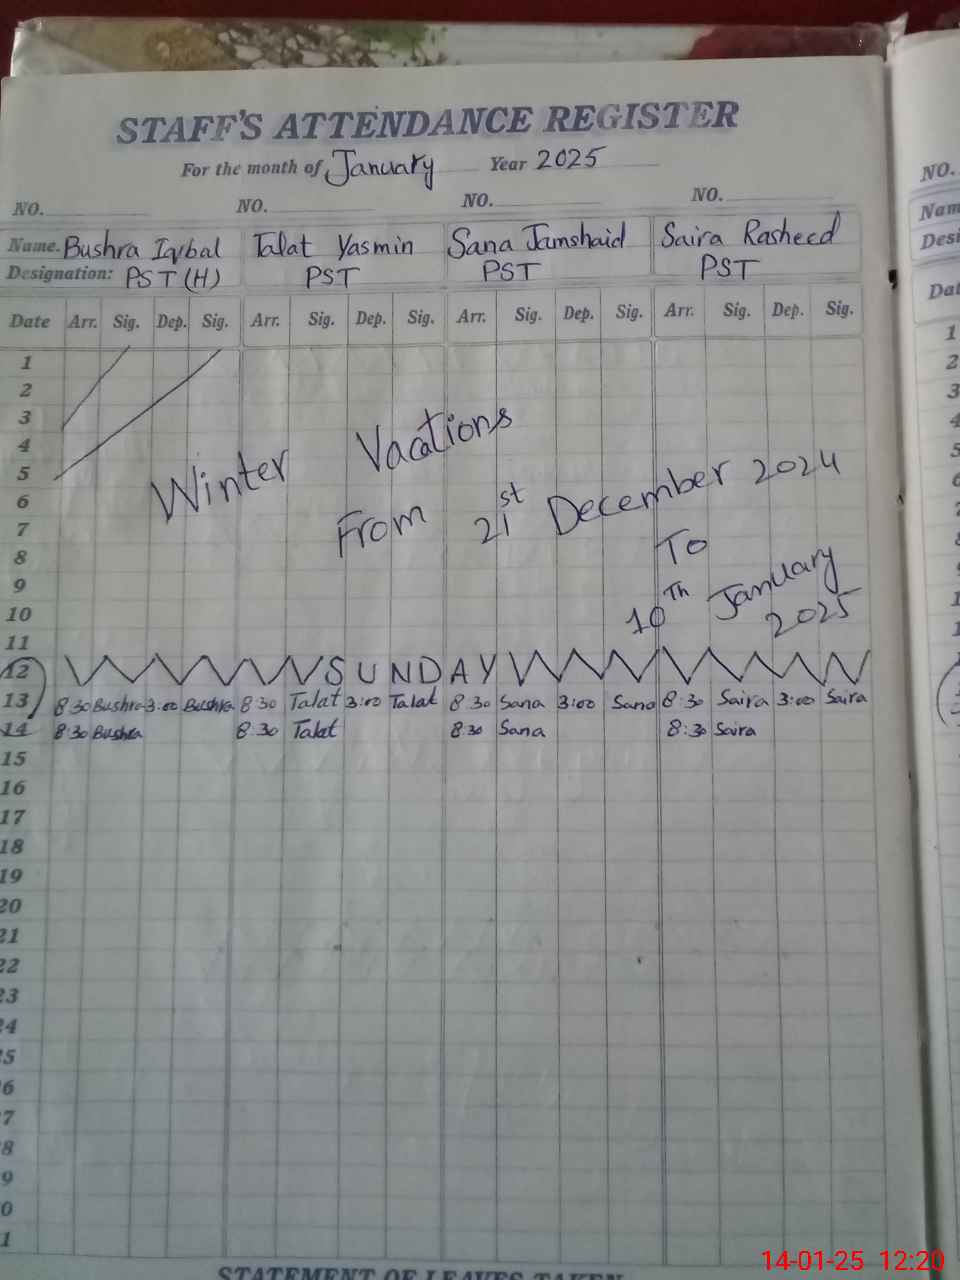 STAFF'S ATTENDANCE REGISTER
For the month of January Year 2025
NO. NO. NO. NO.
Name. Bushra Iqbal Talat Yasmin Sana Jamshaid Saira Rasheed
Designation: PST (H) PST PST PST
Date Arr. Sig. Dep. Sig. Arr. Sig. Dep. Sig. Arr. Sig. Dep. Sig. Arr. Sig. Dep. Sig.
1
2
3
4
Winter Vacations
5
6
From 21st December 2024
7
8
To
9
10
10Th January
2025
11
12 SUNDAY
13 8 30 Bushra 3:00 Bushra 8 30 Talat 3:00 Talat 8 30 Sana 3:00 Sana 8:30 Saira 3:00 Saira
14 8 30 Bushra 8:30 Talat 8:30 Sana 8:30 Saira
15
16
17
18
19
20
21
22
23
24
5
6
7
8
9
0
1
STATEMENT OF LEAVES TAKEN
NO.
Nam
Desi
Dat
1
2
3
4
5
14-01-25 12:20